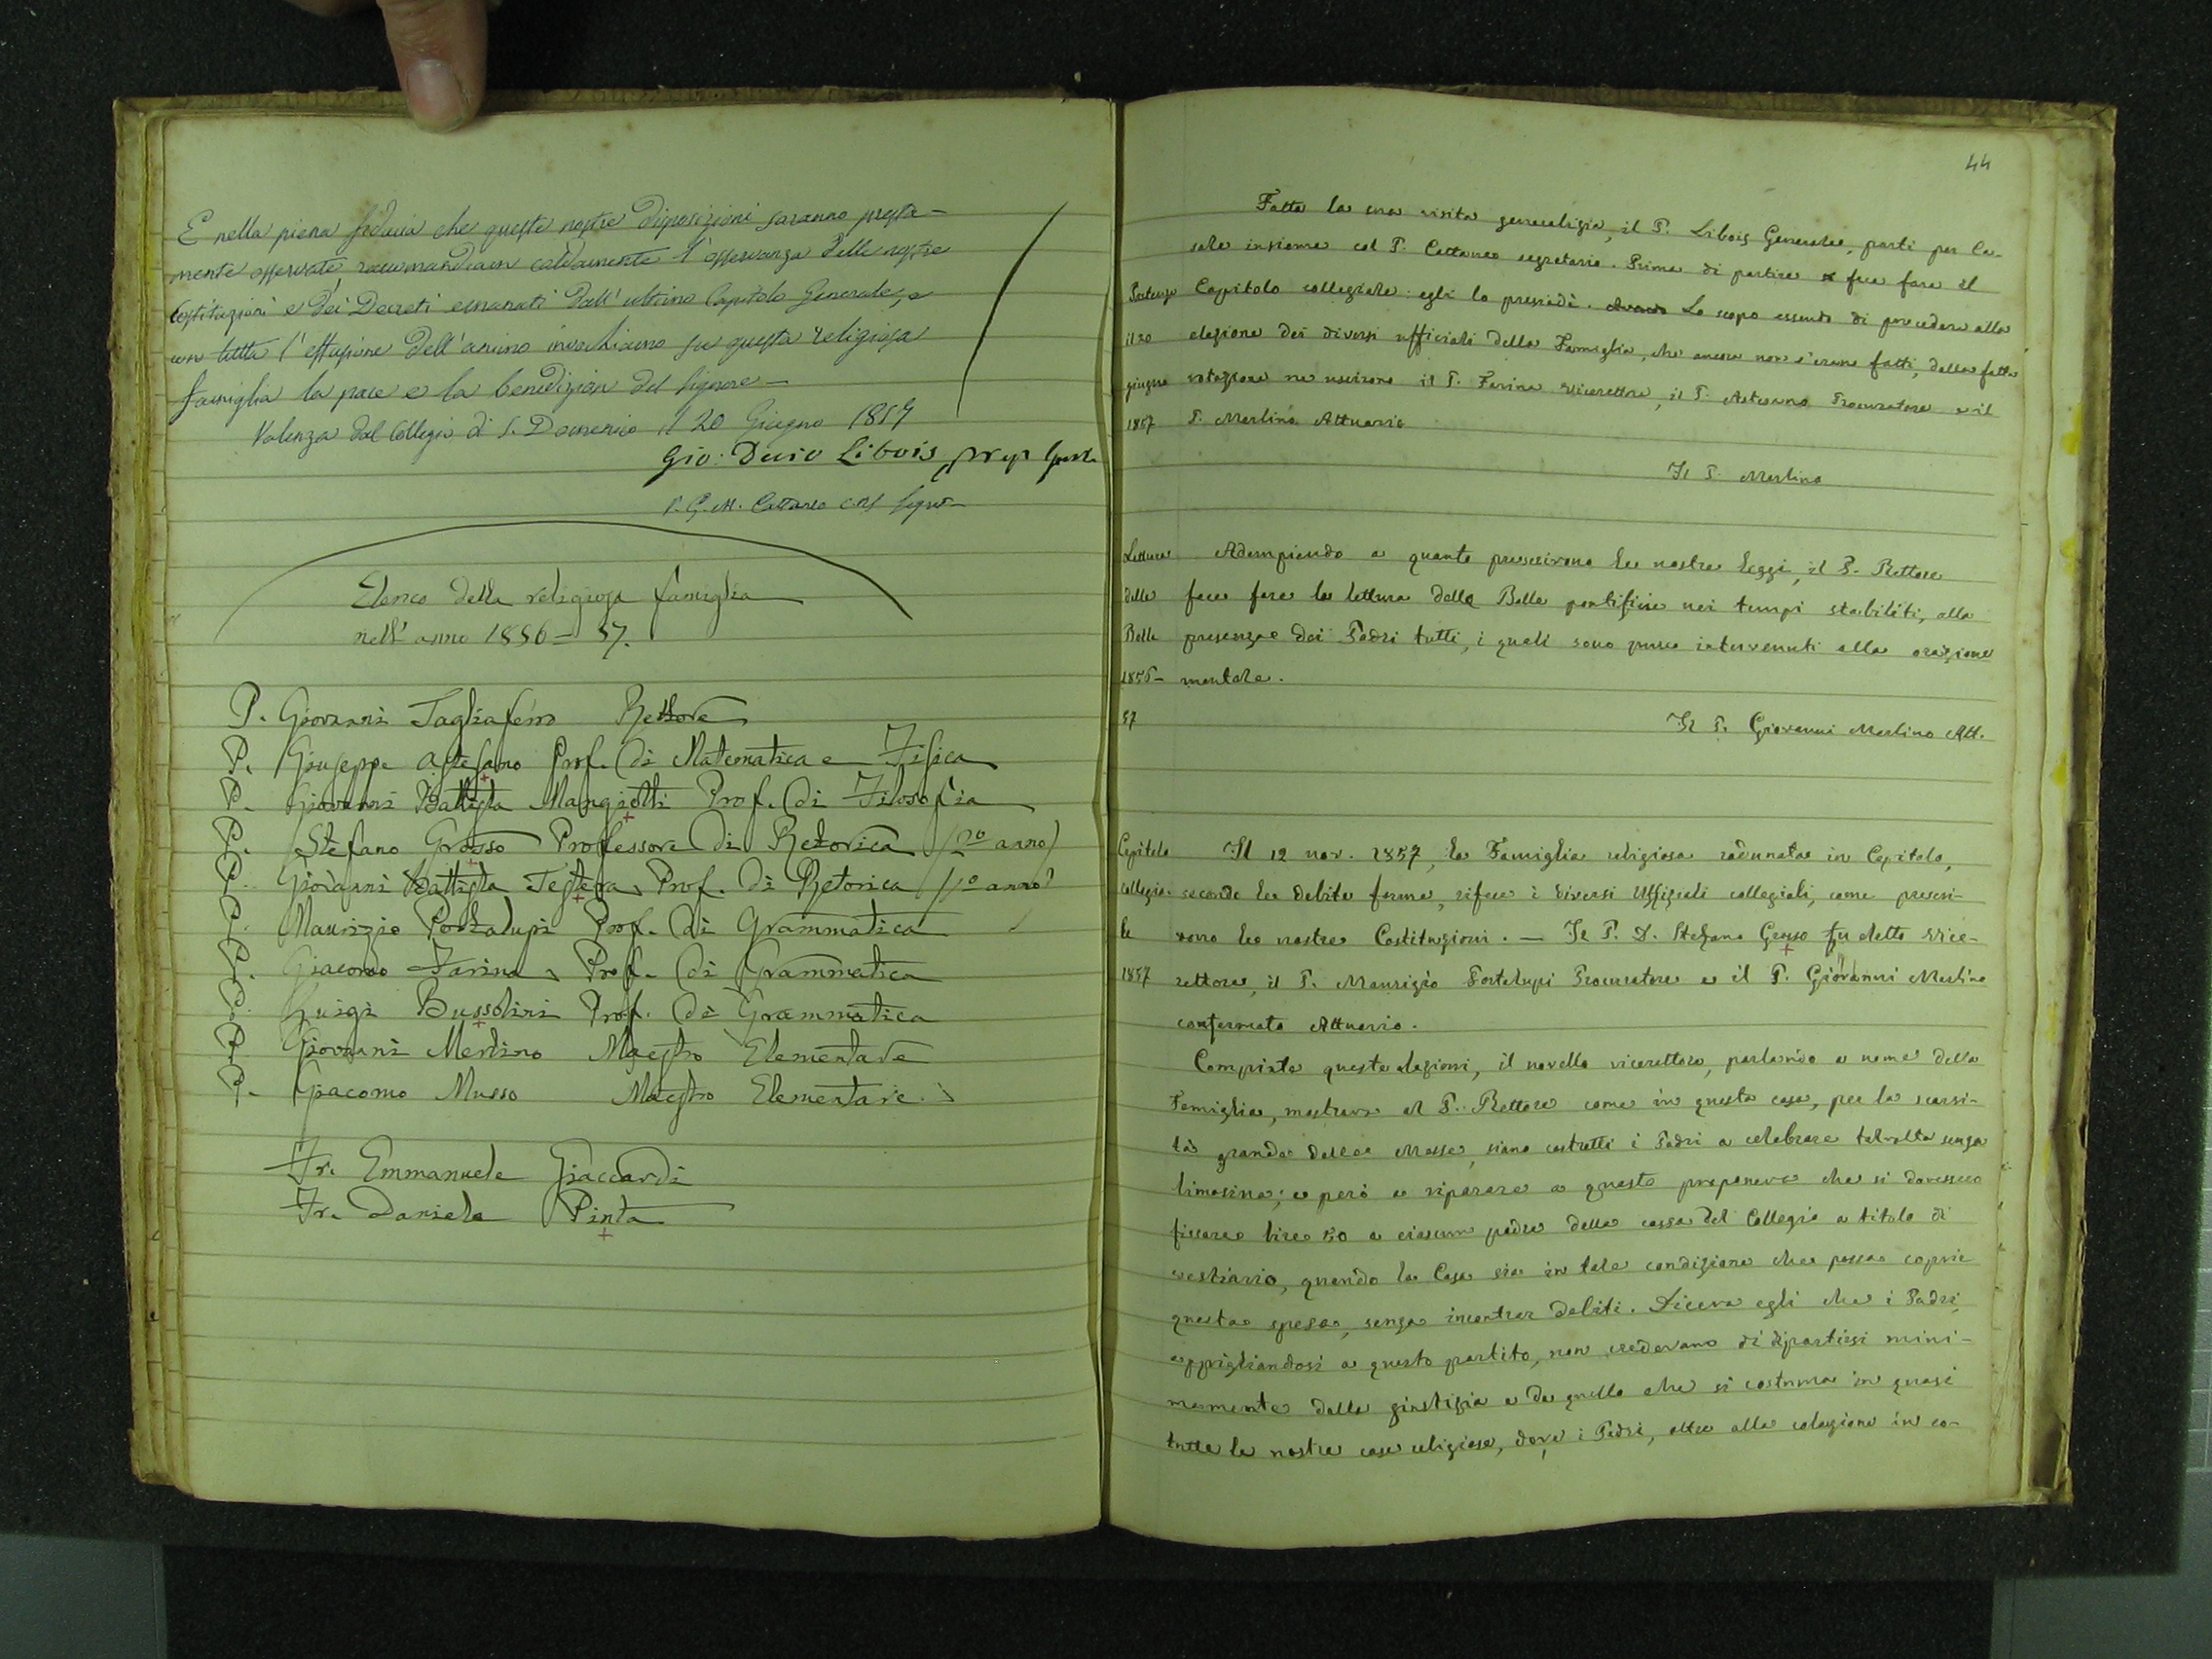 E nella piena fiducia che queste nostre disposizioni saranno presta-
mente osservate, raccomandiam caldamente l'osservanza delle nostre
Costituzioni e dei Decreti emanati dall'ultimo Capitolo Generale, e
con tutta l'effusione dell'animo invochiamo su questa religiosa
famiglia la pace e la benedizion del Signore—
Valenza dal Collegio di S. Domenico il 20 Giugno 1857
Gio: Decio Libois, Prep Genle
P. G. M. Cattaneo C.R.S Segret—
Elenco della religiosa famiglia
nell'anno 1856-57.
P. Giovanni Tagliaferro Rettore
P. Giuseppe Astesano Prof. di Matematica e Fisica
P. Giovanni Battista Mangiotti Prof. di Filosofia
P. Stefano Grosso Professore di Retorica (2º anno)
P. Giovanni Battista Testera, Prof. di Retorica (1º anno)
P. Maurizio Portalupi Prof. di Grammatica
P. Giacomo Farina, Prof. di Grammatica
P. Luigi Bussolini Prof. di Grammatica
P. Giovanni Merlino Maestro Elementare
P. Giacomo Musso Maestro Elementare.
Fr. Emmanuele Giaccardi
Fr. Daniele Pinta
44
Fatta la sua visita generalizia, il P. Libois Generale, partì per Ca-
sale insieme col P. Cattaneo segretario. Prima di partire fece fare il
Partenza Capitolo collegiale: egli lo presiedì. Lo scopo essendo di procedere alla
il 20 elezione dei diversi ufficiali della Famiglia, che ancora non s'erano fatti, dalla fatta
giugno votazione ne uscirono il P. Farina vicerettore, il P. Astesano Procuratore e il
1857 P. Merlino Attuario
Il P. Merlino
Lettura Adempiendo a quanto prescrivono le nostre leggi, il P. Rettore
delle fece fare la lettura delle Bolle pontificie nei tempi stabiliti, alla
Bolle presenza dei Padri tutti, i quali sono pure intervenuti alla orazione
1856- mentale.
57 Il P. Giovanni Merlino Att.
Capitolo Il 12 nov. 1857, la Famiglia religiosa radunata in Capitolo,
collegia- secondo le debite forme, rifece i diversi Uffiziali collegiali, come prescri-
le vono le nostre Costituzioni. — Il P. D. Stefano Grosso fu eletto vice-
1857 rettore, il P. Maurizio Portalupi Procuratore e il P. Giovanni Merlino
confermato Attuario.
Compiute queste elezioni, il novello vicerettore, parlando a nome della
Famiglia, mostrava al P. Rettore come in questa casa, per la scarsi-
tà grande delle Messe, siano costretti i Padri a celebrare talvolta senza
limosina; e però a riparare a questo proponeva che si dovesse
fissare lire 50 a ciascun padre dalla cassa del Collegio a titolo di
vestiario, quando la Casa sia in tale condizione che possa coprir
questa spesa, senza incontrar debiti. Diceva egli che i Padri,
appigliandosi a questo partito, non credevano di dipartirsi mini-
mamente dalla giustizia e da quello che si costuma in quasi
tutte le nostre case religiose, dove i Padri, oltre alla colazione in co-